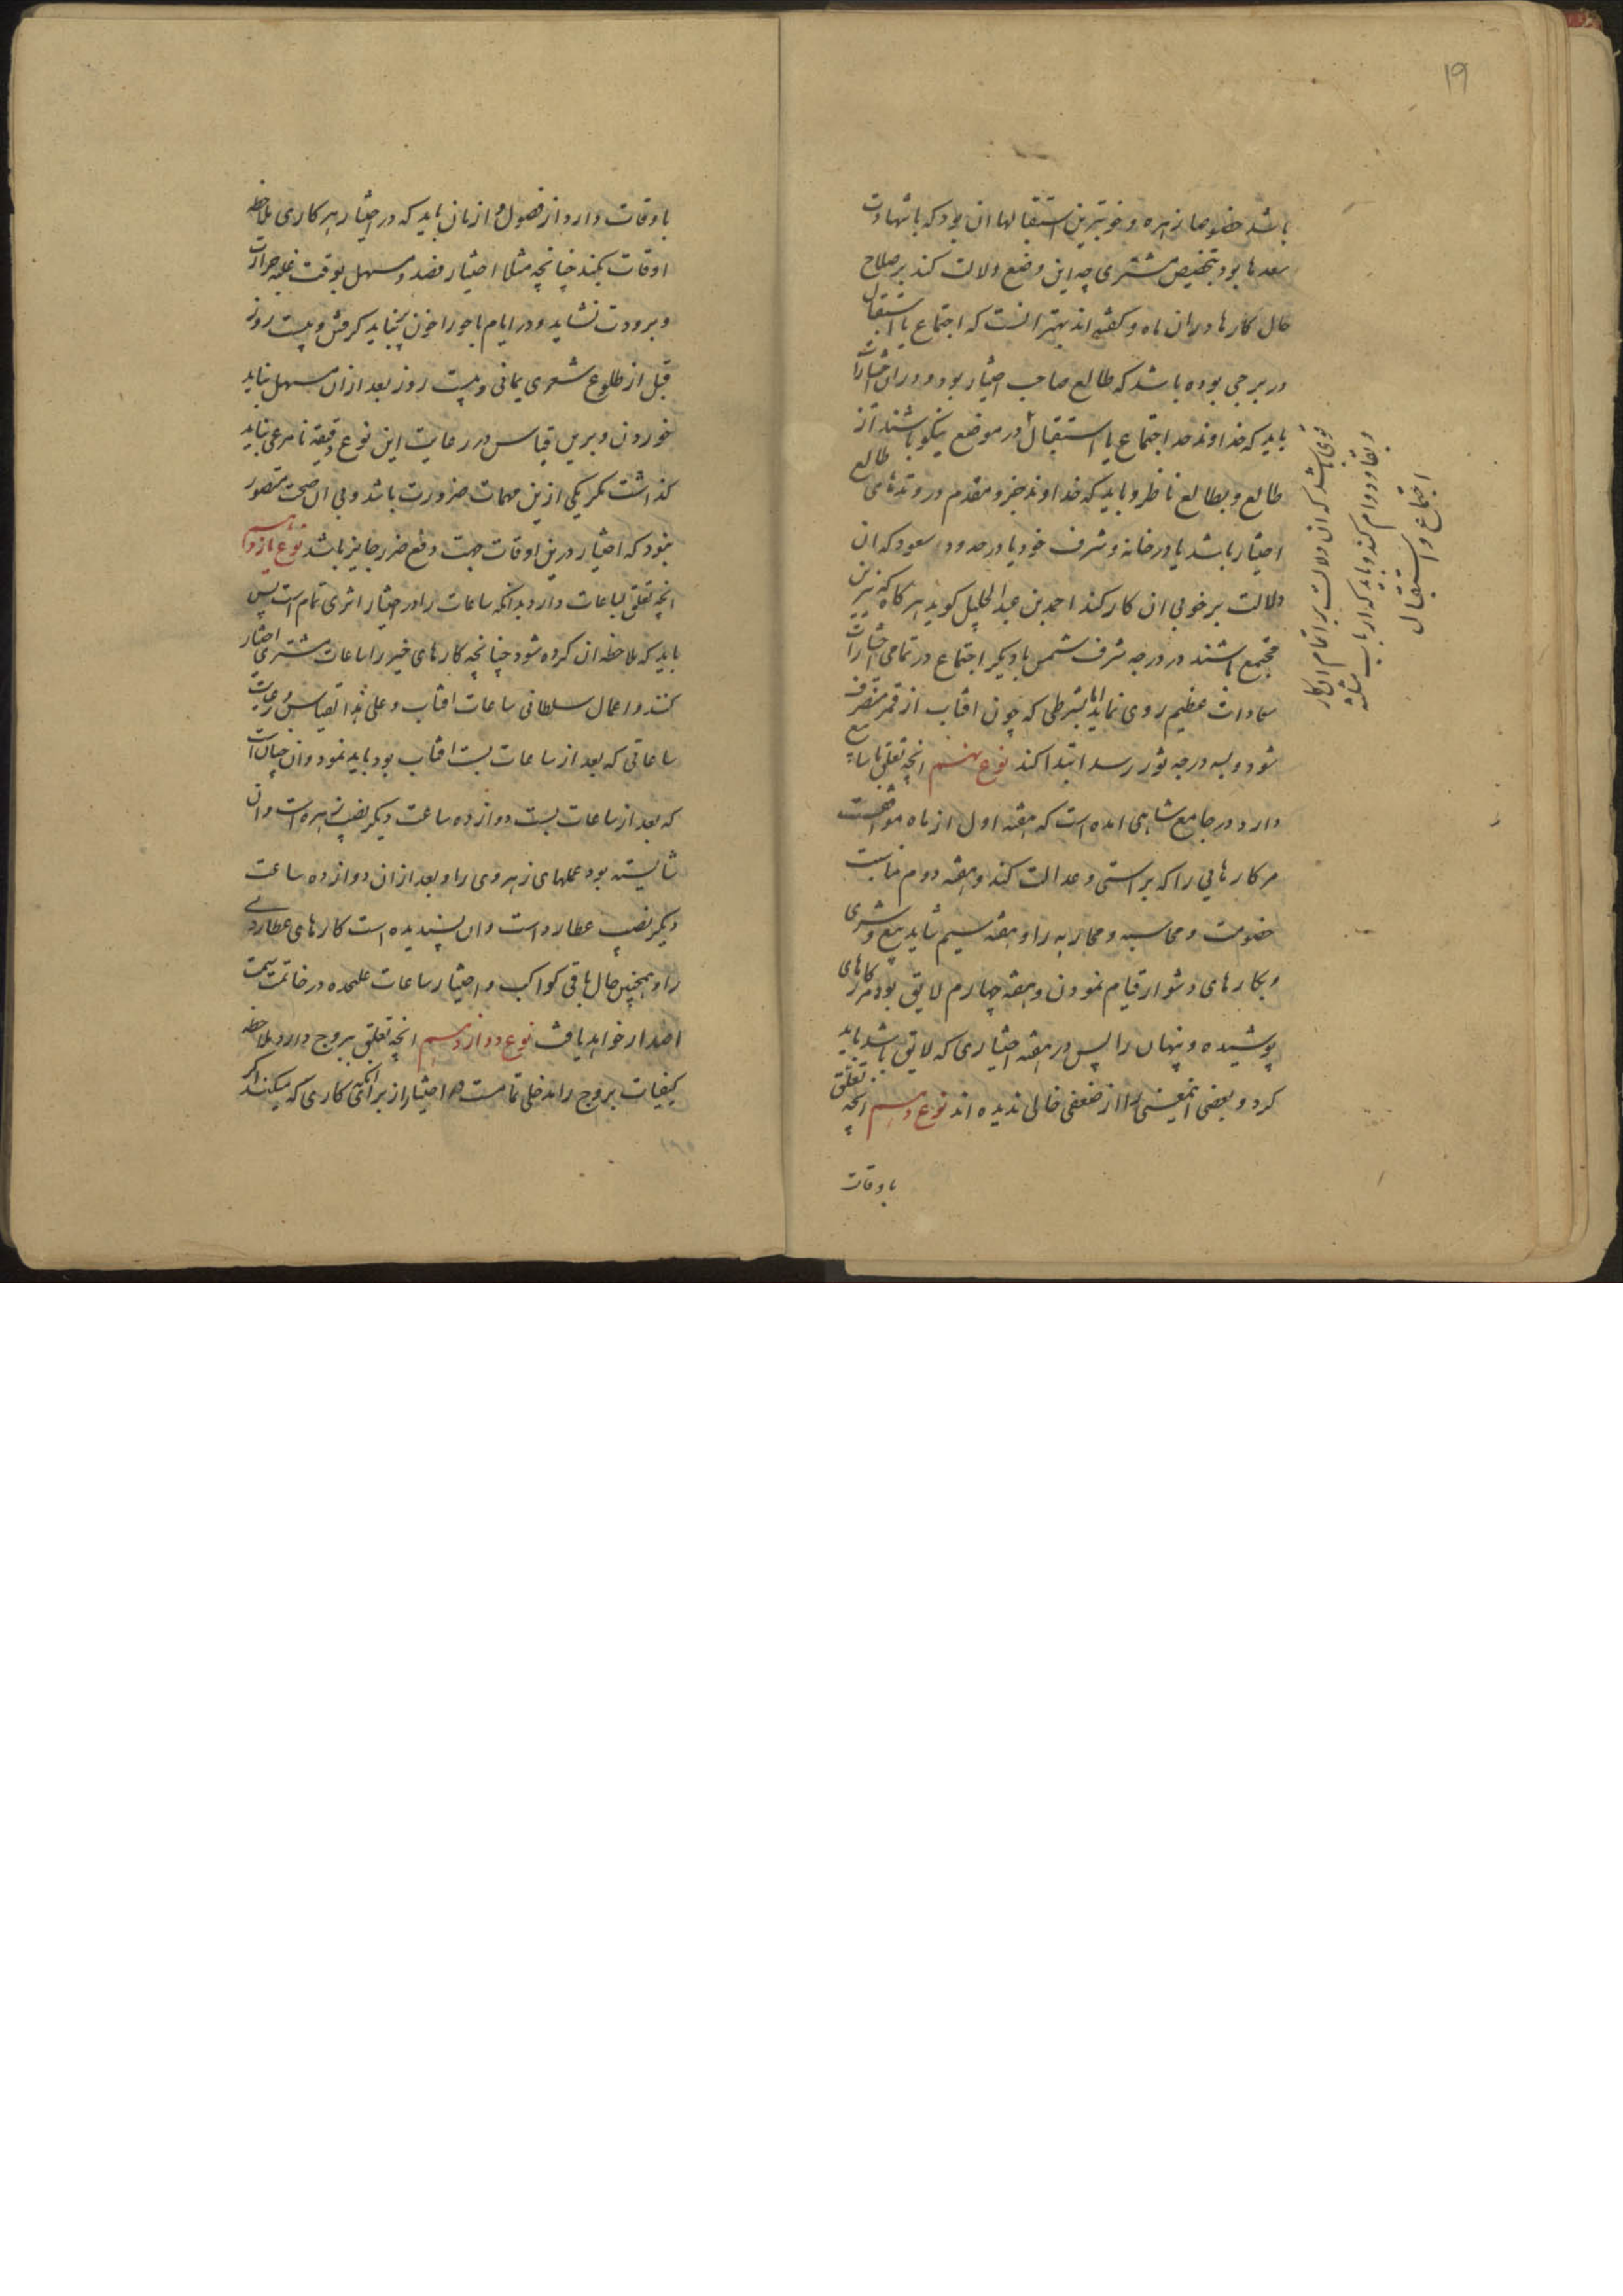 ۱۹
باشد خصوصا زهره و خوبترین استقبالها ان بود که باشهادت
سعدها بود بتخصیص مشتری چه این وضع دلالت کند بر صلاح
حال کارها دران ماه و کفته اند بهتر انست که اجتماع یا استقبال
در برجی بوده باشد که طالع صاحب اختیار بود و دران اختیارات
باید که خداوند حد اجتماع یا استقبال در موضع نیکو باشند از
طالع و بطالع ناظر و باید که خداوند جزو مقدم در وتدهای طالع
اختیار باشد یا در خانه و شرف خود یا در حدود سعود که ان
دلالت بر خوبی ان کار کند احمد بن عبد الجلیل کوید هر کاه که نیرین
مجتمع باشند در درجه شرف شمس یا دیکر اجتماع در تمامی اختیارات
سعادات عظیم روی نماید اما بشرطی که چون افتاب از قمر منصرف
شود و بسه درجه ثور رسد ابتدا کند نوع نهم انچه تعلق باسابیع
دارد در جامع شاهی امده است که هفته اول از ماه موافقست
مر کارهایی را که براستی و عدالت کند و هفته دوم مناسبت
خصومت و محاسبه و محاربه را و هفته سیم شاید بیع و شری
و بکارهای دشوار قیام نمودن و هفته چهارم لایق بود مر کارهای
پوشیده و پنهان را پس در هفته اختیاری که لایق باشد باید
کرد و بعضی اینمعنی را از ضعفی خالی ندیده اند نوع دهم انچه تعلق
باوقات
قوی باشد که ان دلالت بر اتمام ان کار
و بقا و دوام کند و باید که ارباب مثلثه
اجتماع و استقبال
باوقات دارد از فصول و ازمان باید که در اختیار هر کاری ملاحظه
اوقات بکنند چنانچه مثلا اختیار فصد و مسهل بوقت غلبه حرارت
و برودت نشاید و در ایام باحورا خون نباید کرفتن و بیست روز
قبل از طلوع شعری یمانی و بیست روز بعد از ان مسهل نباید
خوردن و برین قیاس در رعایت این نوع دقیقه نامرعی نباید
کذاشت مکر یکی ازین مهمات ضرورت باشد و بی ان صحت متصور
نبود که اختیار درین اوقات جهت دفع ضرر جایز باشد نوع یازدهم
انچه تعلق بساعات دارد بدانکه ساعات را در اختیار اثری تمام است پس
باید که ملاحظه ان کرده شود چنانچه کارهای خیر را ساعات مشتری اختیار
کنند و اعمال سلطانی ساعات افتاب و علی هذا القیاس و رعایت
ساعاتی که بعد از ساعات بست افتاب بود باید نمود و ان چنان است
که بعد از ساعات بست دوازده ساعت دیکر نصیب زهره است و ان
شایسته بود عملهای زهروی را و بعد از ان دوازده ساعت
دیکر نصیب عطارد است و ان پسندیده است کارهای عطاردی
را و همچنین حال باقی کواکب و اختیار ساعات علیحده در خاتمت سمت
اصدار خواهد یافت نوع دوازدهم انچه تعلق ببروج دارد ملاحظه
کیفیات بروج را مدخلی تمامست در اختیار از برای انکه کاری که میکنند اکر